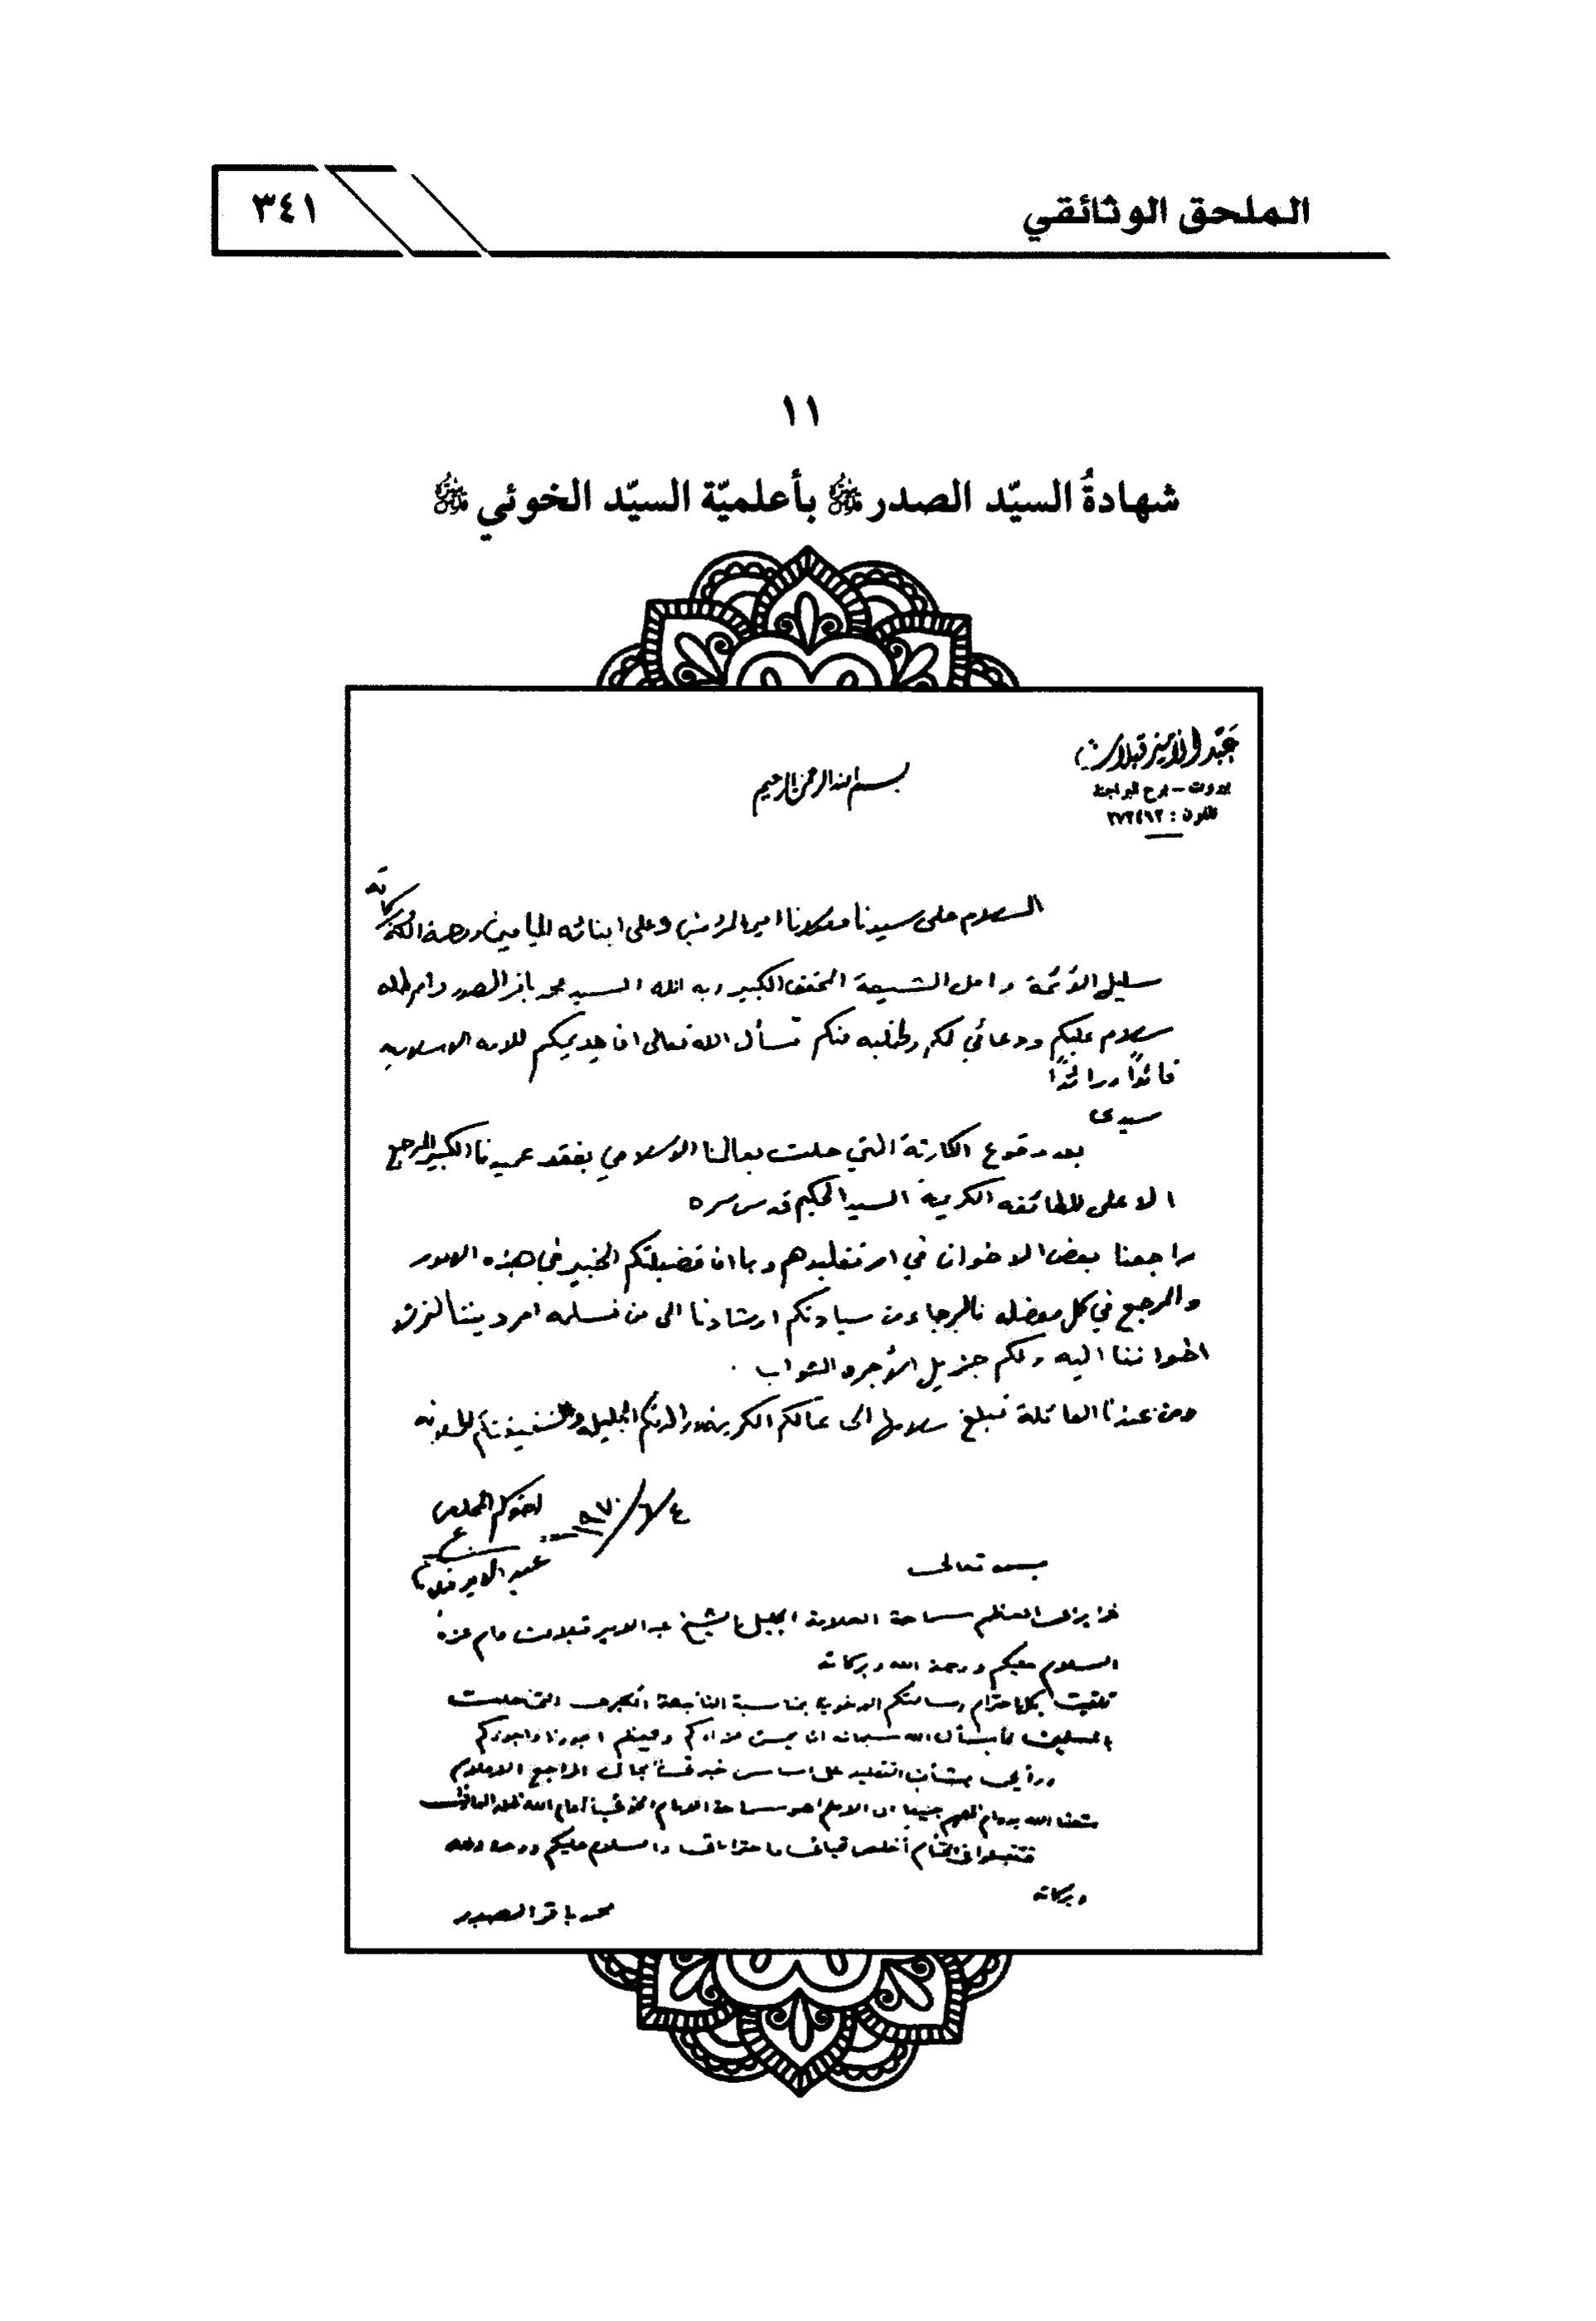 الملحق الوثائقي
٣٤١
١١
شهادةُ السيّد الصدر قدس سره بأعلميّة السيّد الخوئي قدس سره
عبد الأمير قبلان
بيروت – برج البراجنة
تلفون : ٢٧٢٤٩٢
بسم الله الرحمن الرحيم
السلام على سيدنا ومولانا امير المؤمنين وعلى ابنائه الميامين ورحمة الله وبركاته
سليل الأئمة وامل الشيعة المحقق الكبير آية الله السيد محمد باقر الصدر دام ظله
سلام عليكم ودعائي لكم وطلبه منكم نسأل الله تعالى ان يديمكم للامة الاسلامية
قائدًا ورائدًا
سيدي
بعد وقوع الكارثة التي حلت بعالمنا الاسلامي بفقد عميدنا الكبير المرجع
الاعلى للطائفه الكريمة السيد الحكيم قدس سره
راجعنا بعض الاخوان في امر تقليدهم وبما ان فضيلتكم الخبير في هذه الامور
والمرجع في كل معضله فالرجاء من سيادتكم ارشادنا الى من نسلمه امر ديننا لنرشد
اخواننا اليه ولكم جزيل الأجر والثواب .
ومن عندنا العائلة نبلغ سلامها الى عيالكم الكريمة ووالدتكم الجليله
٤/٦/١٩٧٠
اخوكم المخلص
عبد الامير قبلان
بسمه تعالى
عزيزي المعظم سماحة العلامة الجليل الشيخ عبد الامير قبلان دام عزه
السلام عليكم ورحمة الله وبركاته
تلقيت بكل احترام رسالتكم الاخوية بمناسبة الفاجعة الكبرى التي حلت
بالمسلمين فأسأل الله سبحانه ان يحسن عزاءكم ويعظم اجورنا واجوركم
ورأيي بشأن التقليد على اساس خبرتنا بحال المراجع الاعلام
متعنا الله بدوام ظلهم جميعا ان الاعلم هو سماحة الامام الخوئي ادام الله ظله الوارف
فتقبلوا في الختام أخلص تحياتي واحتراماتي والسلام عليكم ورحمة الله
وبركاته
محمد باقر الصدر